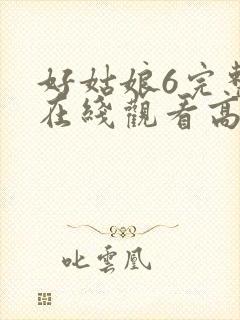 好姑娘6完整
在线觀看高
叱雲凰